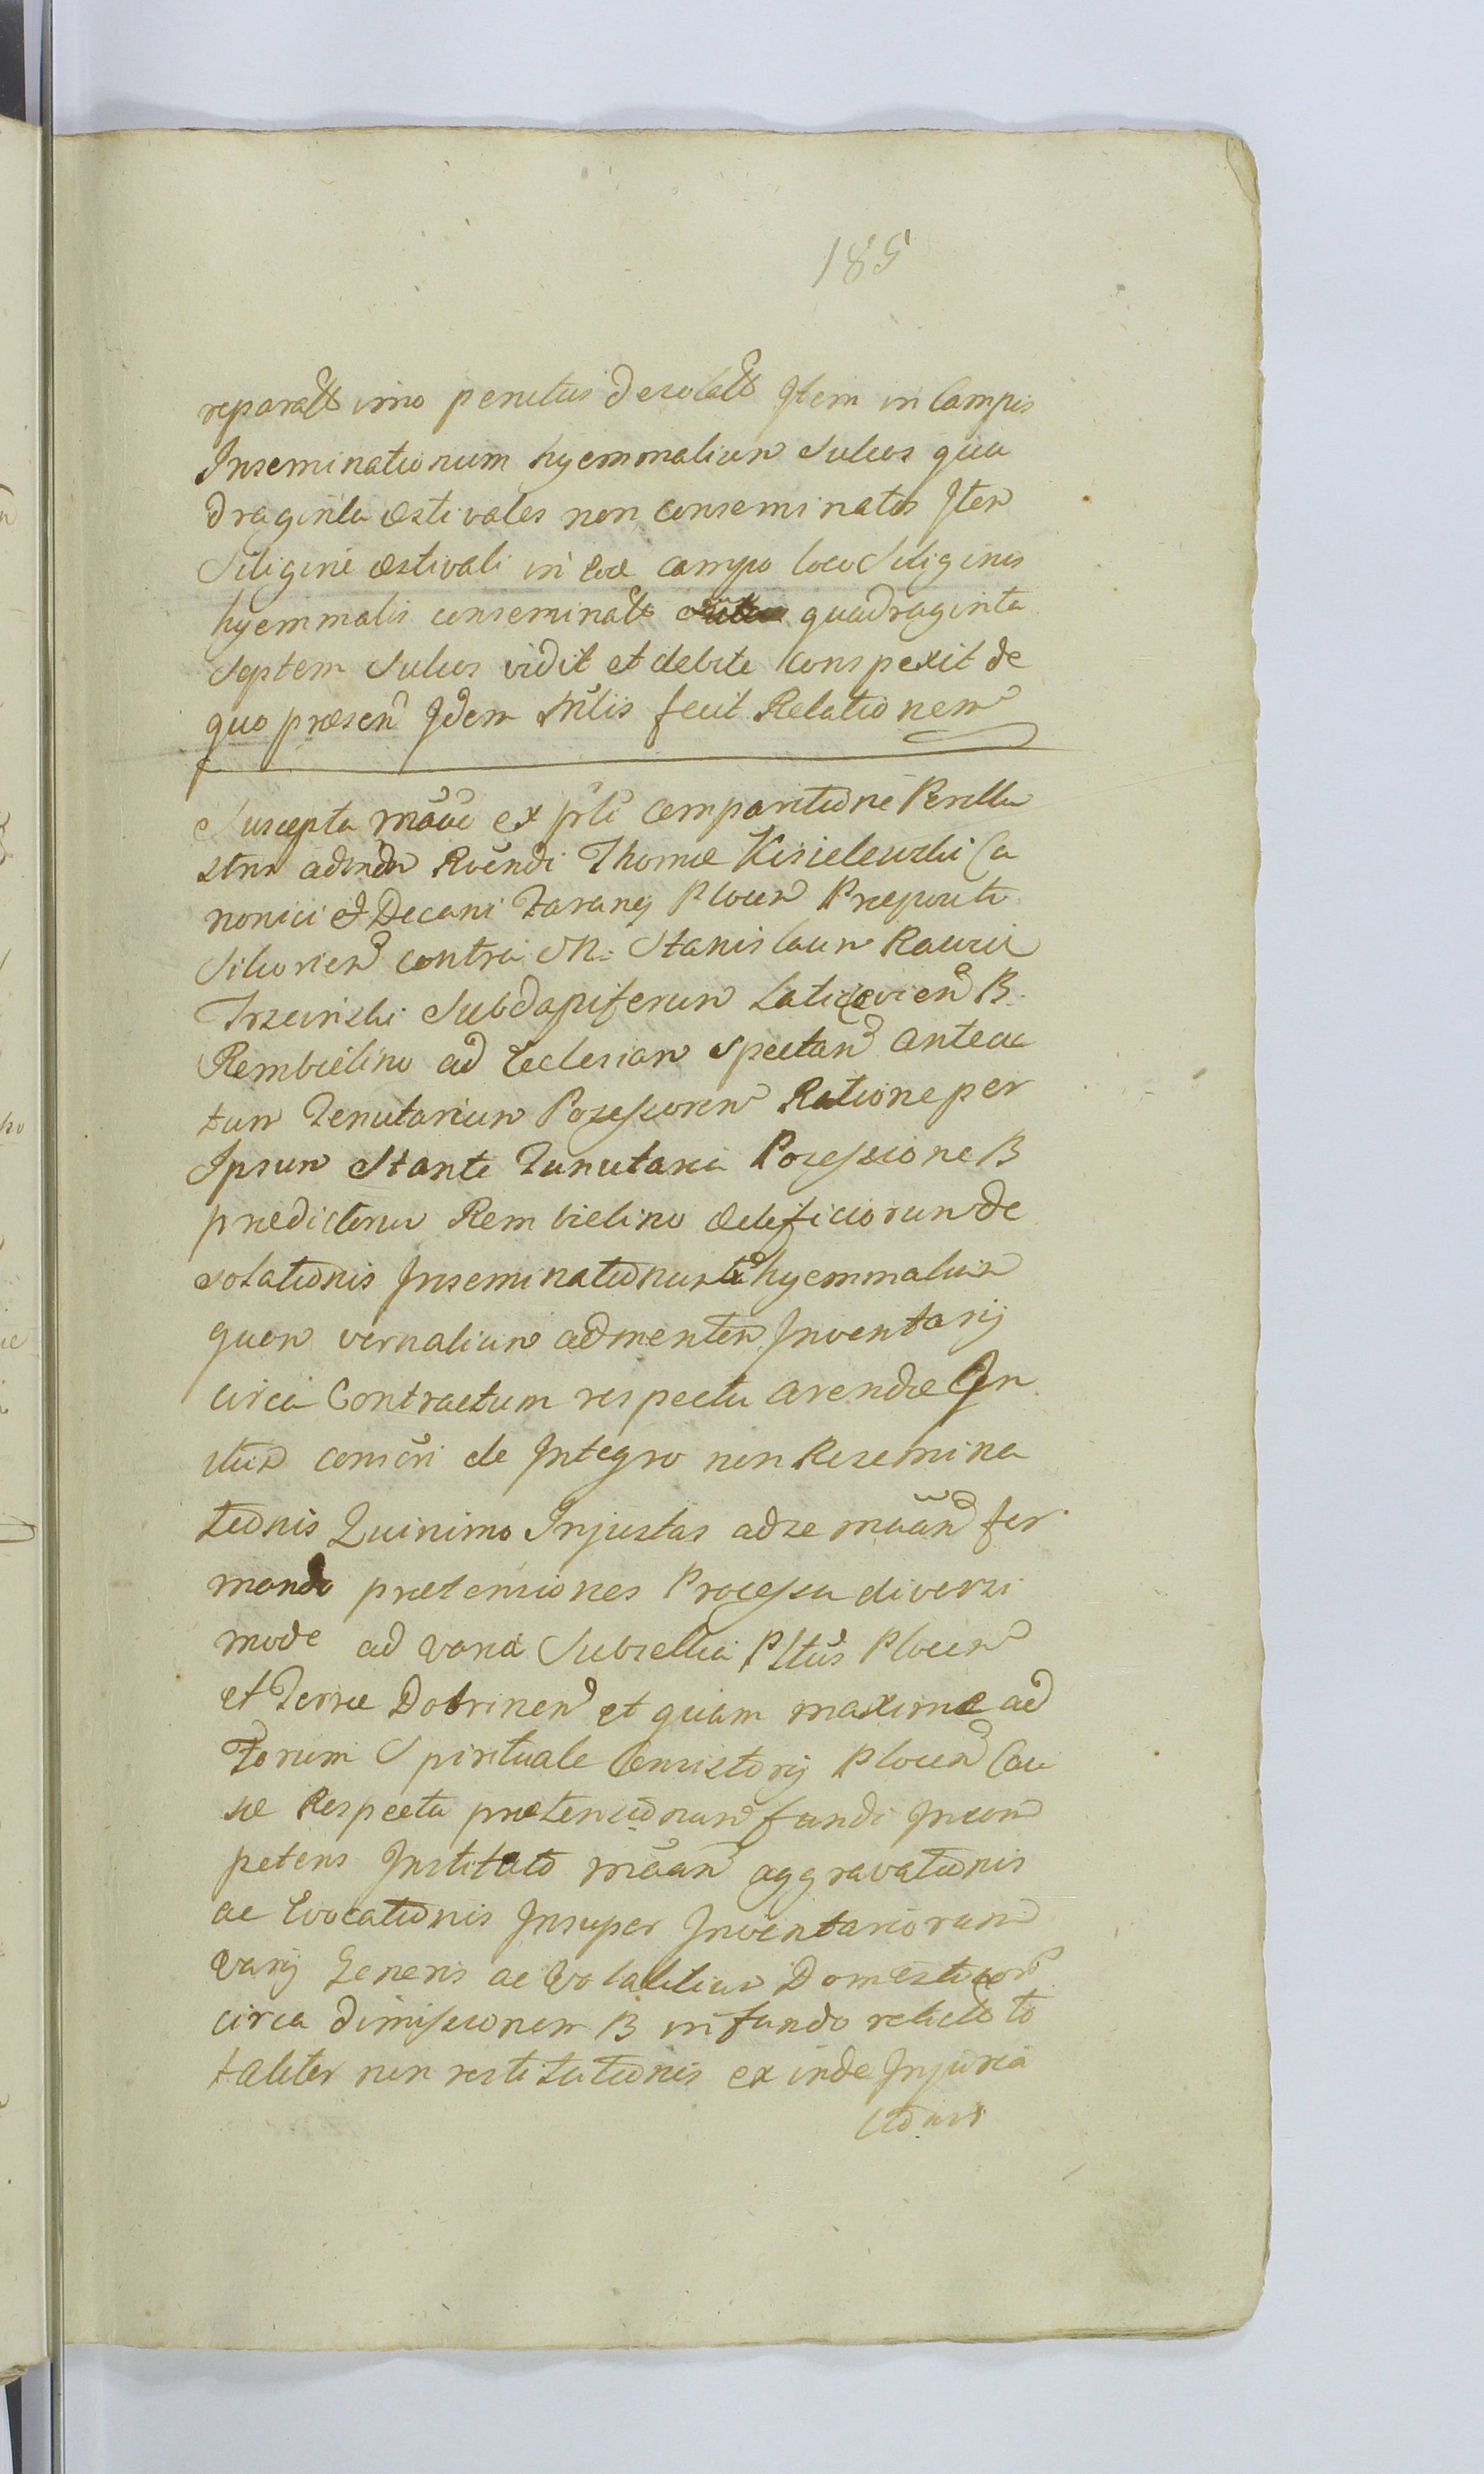 185
reparatt imo penitus desolatt Item in Campis
Inseminationum hyemmalium sulcos qua
draginta æstivales non conseminatos Item
Siligine æstivali in eod campo loco Siliginis
hyemmalis conseminatt quadraginta
Septem sulcos vidit et debite conspexit de
quo præsen Idem Mlis fecit Relationem
Suscepta ex comparitione
Rvendi Thomæ Kisielewski Ca
nonici et Decani Plocen Præpositi
contra M. Stanislaum
Subdapiferum B.
Rembielino ad Ecclesiam spectan anteac
tum Tenutarium Possessorem Ratione per
Ipsum Stante Tenutaria Possessione B
prædictorum Rembielino ædificiorum de
solationis Inseminationum hyemmalium
quam vernalium ad mentem Inventarij
circa Contractum respectu arendæ In
itum de Integro non Resemina
tionis Quinimo Injustas ad se for
mando prætensiones Processu diversi
mode ad varia Subsellia Plocen
et Terræ Dobrinen et quam maxime ad
Forum Spirituale Consistorij Plocen Cau
sæ Respectu prætensionum fundi Incom
petens Instituto aggravationis
ac Evocationis Insuper Inventariorum
varij Generis ac Volatilium Domesticor
circa dimissionem B in fundo relictt to
taliter non restitutionis ex inde Injuria